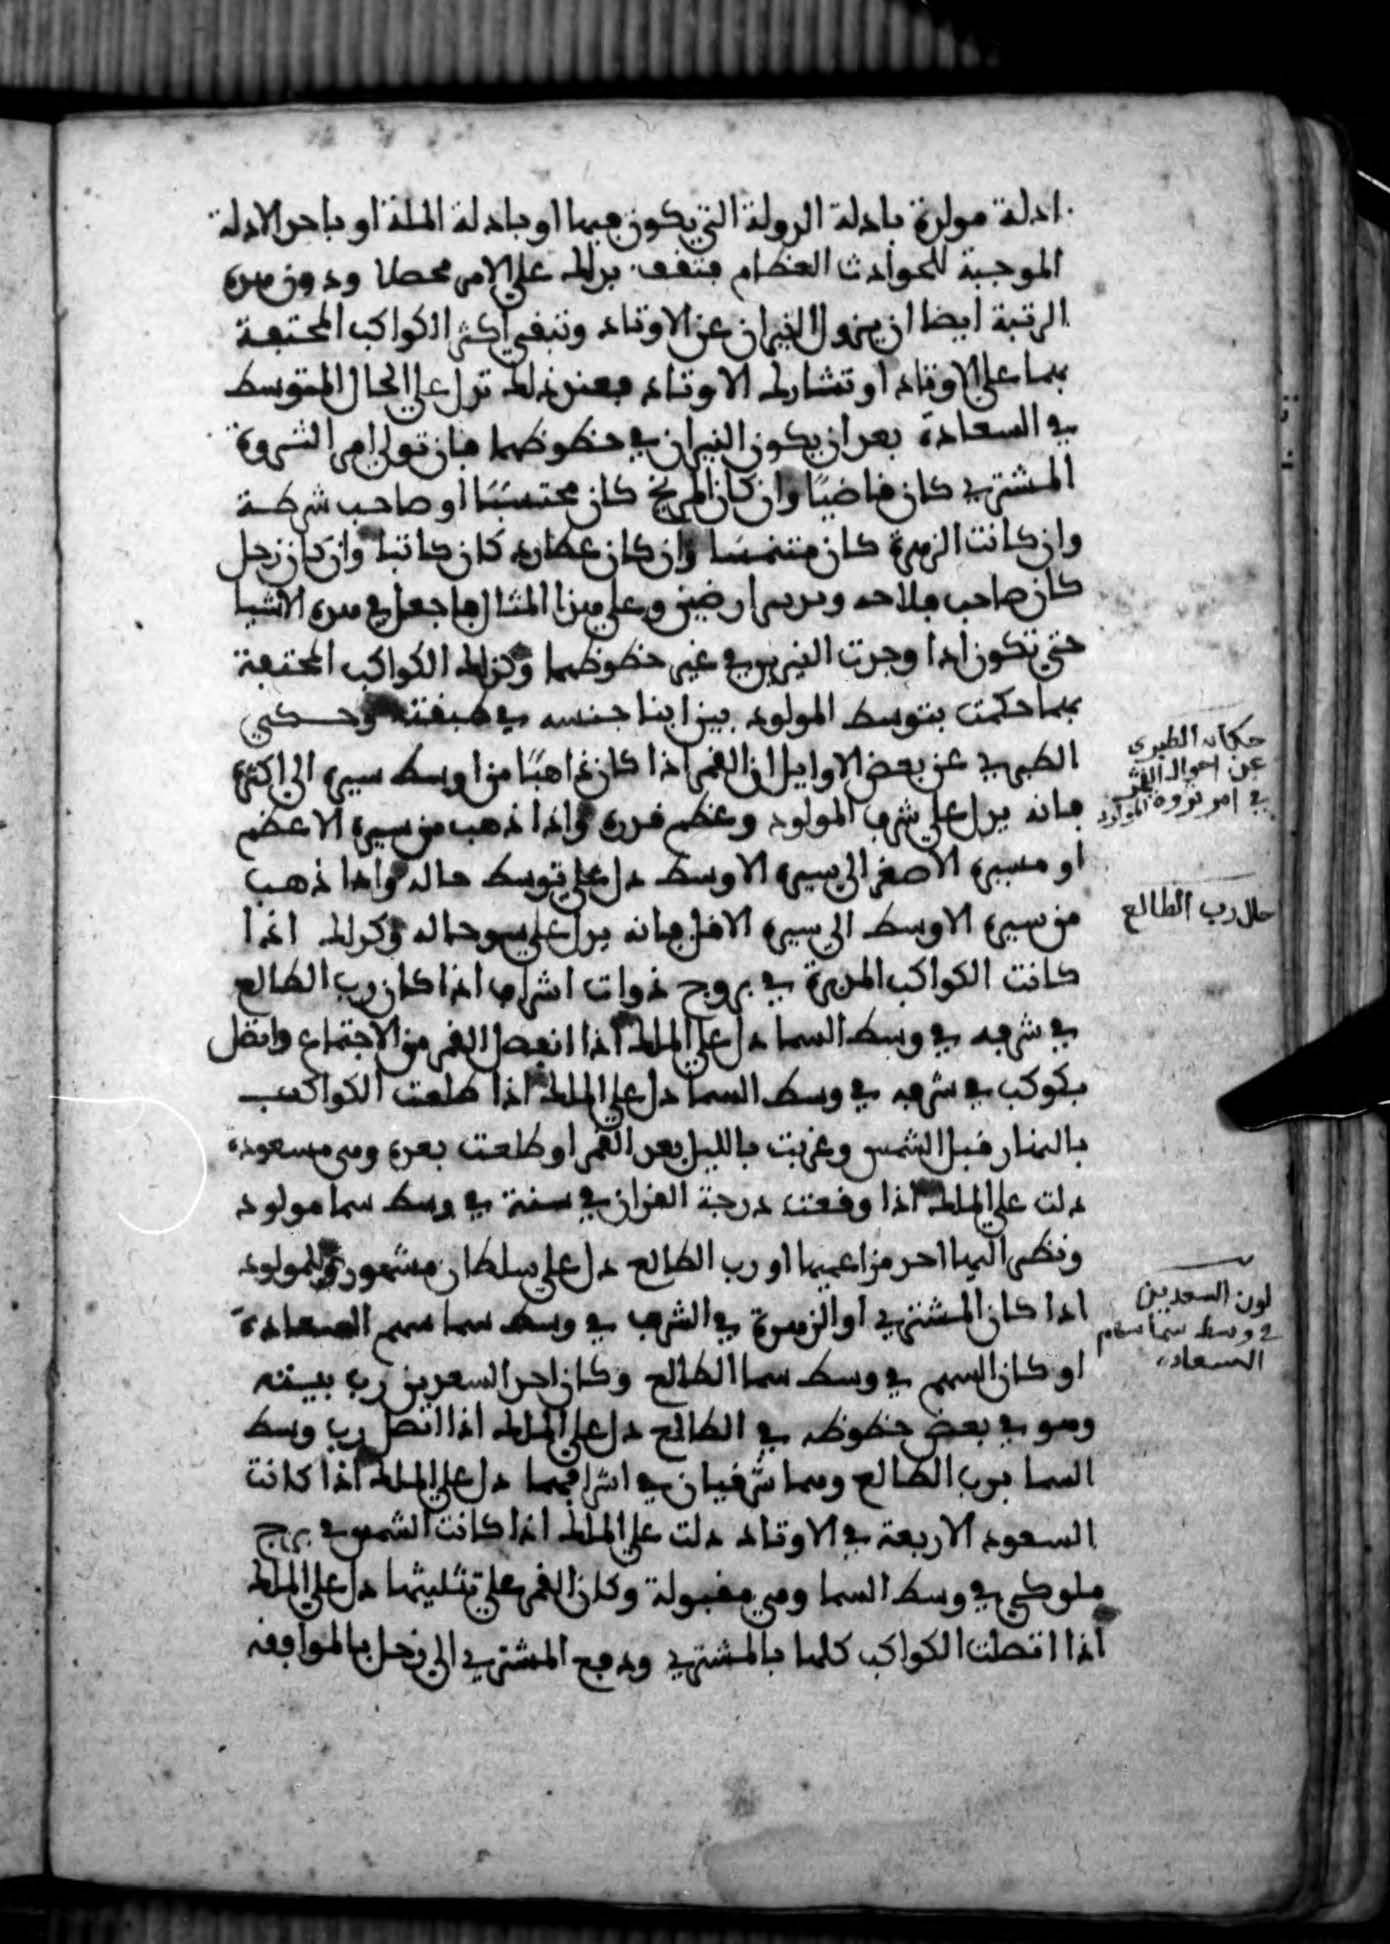 ادلة مولده بادلة الدولة التي يكون فيها او بادلة الملة او باحد الادلة
الموجبة للحوادث العظام فتقف بذلك على الامر محصلا ودون هذه
الرتبة ايضا ان يزول النيران عن الاوتاد وتبقى اكثر الكواكب المحتفة
بهما على الاوتاد او تشارك الاوتاد فعند ذلك تدل على الحال المتوسط
في السعادة بعد ان يكون النيران في حظوظهما فان تولى امر الثروة
المشتري كان قاضيا وان كان المريخ كان محتسبا او صاحب شرطة
وان كانت الزهرة كان متنمسا وان كان عطارد كان كاتبا وان كان زحل
كان صاحب فلاحه ومدبر ارضين وعلى هذا المثال فاجعل في هذه الاشيا
حتى تكون اذا وجدت النيرين في غير حظوظهما وكذلك الكواكب المحتفة
بهما حكمت بتوسط المولود بين ابنا جنسه في طبقته وحكى
الطبري عن بعض الاوايل ان القمر اذا كان ذاهبا من اوسط سيره الى اكثره
فانه يدل على شرف المولود وعظم قدره واذا ذهب من سيره الاعظم
او مسيره الاصغر الى سيره الاوسط دل على توسط حاله واذا ذهب
من سيره الاوسط الى سيره الاقل فانه يدل على سو حاله وكذلك اذا
كانت الكواكب المدبرة في بروج ذوات اشراف اذا كان رب الطالع
في شرفه في وسط السما دل على الملك اذا انفصل القمر من الاجتماع واتصل
بكوكب في شرفه في وسط السما دل على الملك اذا طلعت الكواكب
بالنهار قبل الشمس وغربت بالليل بعد القمر او طلعت بعده وهي مسعودة
دلت على الملك اذا وقعت درجة القران في سنة في وسط سما مولود
ونظر اليها احد مزاعميها او رب الطالع دل على سلطان مشهور للمولود
اذا كان المشتري او الزهرة في الشرف في وسط سما سهم السعادة
او كان السهم في وسط سما الطالع وكان احد السعدين رب بيته
وهو في بعض حظوظه في الطالع دل على الملك اذا اتصل رب وسط
السما برب الطالع وهما شرقيان في اشرافهما دل على الملك اذا كانت
السعود الاربعة في الاوتاد دلت على الملك اذا كانت الشمس في برج
ملوكي في وسط السما وهي مقبولة وكان القمر على تثليثها دل على الملك
اذا اتصلت الكواكب كلها بالمشتري ودفع المشتري الى زحل بالموافقه
حكاية الطبري
عن احوال القمر
في امر ثروة المولود
حال رب الطالع
لون السعدين
في وسط سما سهام
السعادة